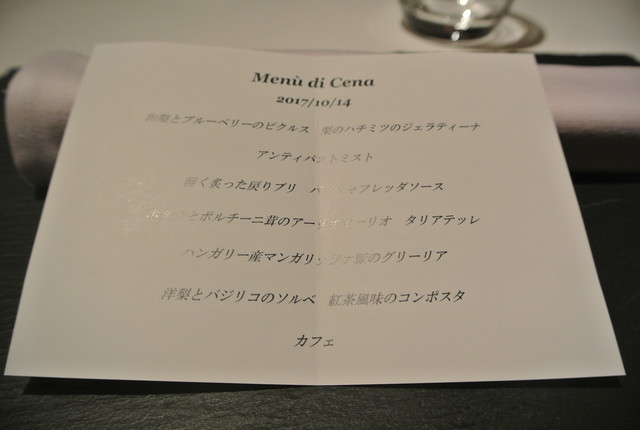 Menù di Cena
2017/10/14
和梨とブルーベリーのピクルス 栗のハチミツのジェラティーナ
アンティパストミスト
軽く炙った戻りブリ フレッダソース
とポルチーニ茸のアーリオオーリオ タリアテッレ
ハンガリー産マンガリッツァ豚のグリーリア
洋梨とバジリコのソルベ 紅茶風味のコンポスタ
カフェ